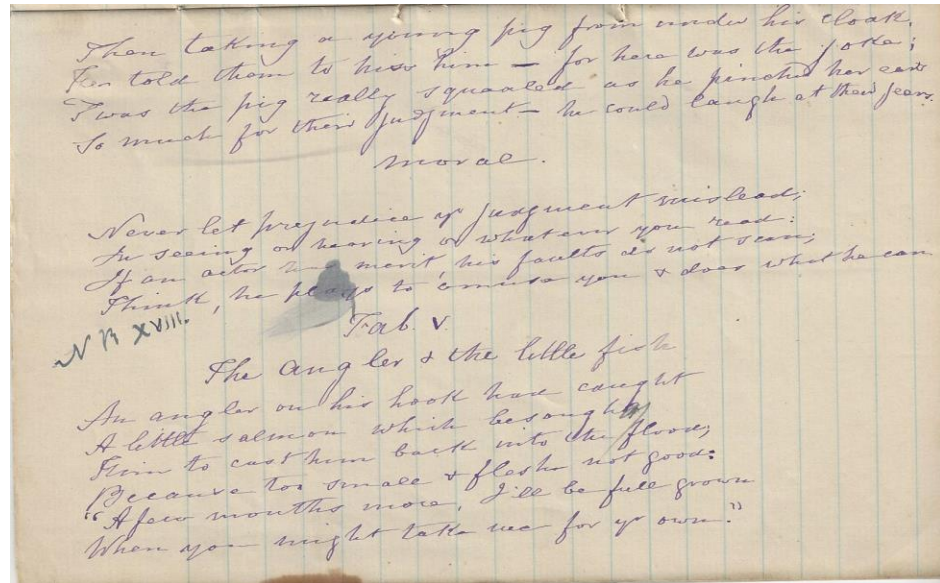 Then taking a young pig from under his cloak,
He told them to hiss him — for here was the joke;
Twas the pig really squaaled as he pinched her ears
So much for their judgment — he could laugh at their jeers.
moral.
Never let prejudice yr judgment mislead;
In seeing or hearing or whatever you read:
If an actor has merit, his faults do not scan;
Think, he plays to amuse you & does what he can
N B XVIII.
Fab. V.
The angler & the little fish
An angler on his hook had caught
A little salmon which besought
Him to cast him back into the flood,
Because too small & flesh not good:
"A few months more, I'll be full grown
When you might take me for yr own."